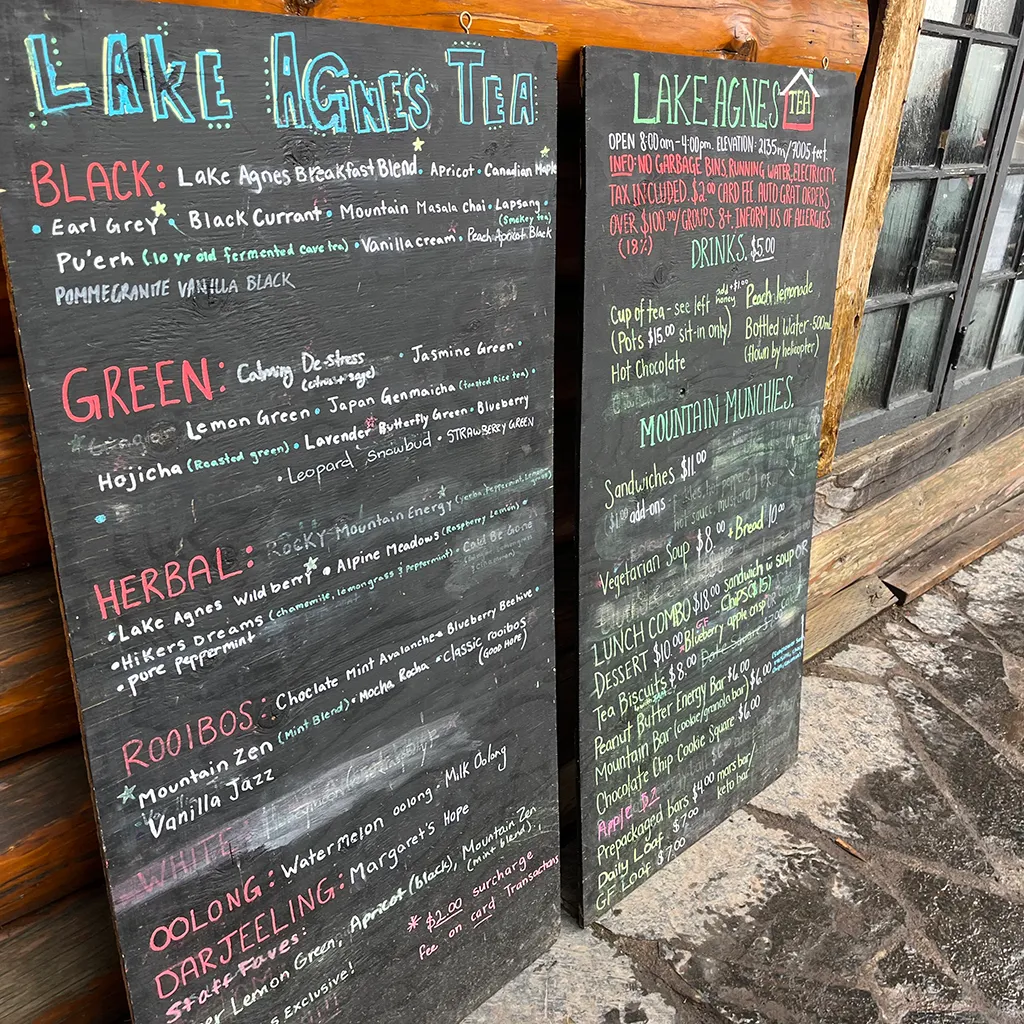 LAKE AGNES TEA
BLACK: Lake Agnes Breakfast Blend • Apricot • Canadian Maple
• Earl Grey • Black Currant • Mountain Masala Chai • Lapsang
(Smokey tea)
Pu'erh (10 yr old fermented cave tea) • Vanilla cream • Peach Apricot Black
POMMEGRANITE VANILLA BLACK
GREEN: Calming De-stress • Jasmine Green •
(citrus + sage)
Lemon Green • Japan Genmaicha (toasted Rice tea) •
Hojicha (Roasted green) • Lavender Butterfly Green • Blueberry
• Leopard Snowbud • STRAWBERRY GREEN
HERBAL: Rocky Mountain Energy (yerba, Peppermint,
• Lake Agnes Wildberry • Alpine Meadows (Raspberry Lemon) •
• Hikers Dreams (chamomile, lemongrass & Peppermint) • Cold Be Gone
• pure Peppermint
ROOIBOS: Choclate Mint Avalanche • Blueberry Beehive •
Mountain Zen (Mint Blend) • Mocha Rocha • Classic rooibos
(GOOD HOPE)
Vanilla Jazz
WHITE
OOLONG: Watermelon oolong • Milk Oolong
DARJEELING: Margaret's Hope
Staff Faves:
Lemon Green, Apricot (black), Mountain Zen
(mint blend)
Exclusive!
* $2.00 surcharge
fee on card Transactions
LAKE AGNES TEA
OPEN 8:00am-4:00pm. ELEVATION: 2135m/7005 feet.
INFO: NO GARBAGE BINS, RUNNING WATER, ELECTRICITY.
TAX INCLUDED. $2.00 CARD FEE. AUTO GRAT ORDERS
OVER $100.00/GROUPS 8+. INFORM US OF ALLERGIES.
(18%)
DRINKS. $5.00
Cup of tea - see left add honey +$1.00 Peach lemonade
(Pots $15.00 sit-in only) Bottled Water - 500mL
Hot Chocolate (flown by helicopter)
MOUNTAIN MUNCHIES.
Sandwiches $11.00
$1.00 add-ons
hot sauce mustard
Vegetarian Soup $8.00 + Bread 10.00
LUNCH COMBO $18.00 sandwich w soup OR
CHIPS ($15)
DESSERT $10.00 GF Blueberry apple crisp OR
Tea Biscuits $8.00
Peanut Butter Energy Bar $6.00
Mountain Bar (cookie/granola bar) $6.00
Chocolate Chip Cookie Square $6.00
Apple $2
Prepackaged bars $4.00 mars bar/
keto bar
Daily Loaf $7.00
GF Loaf $7.00